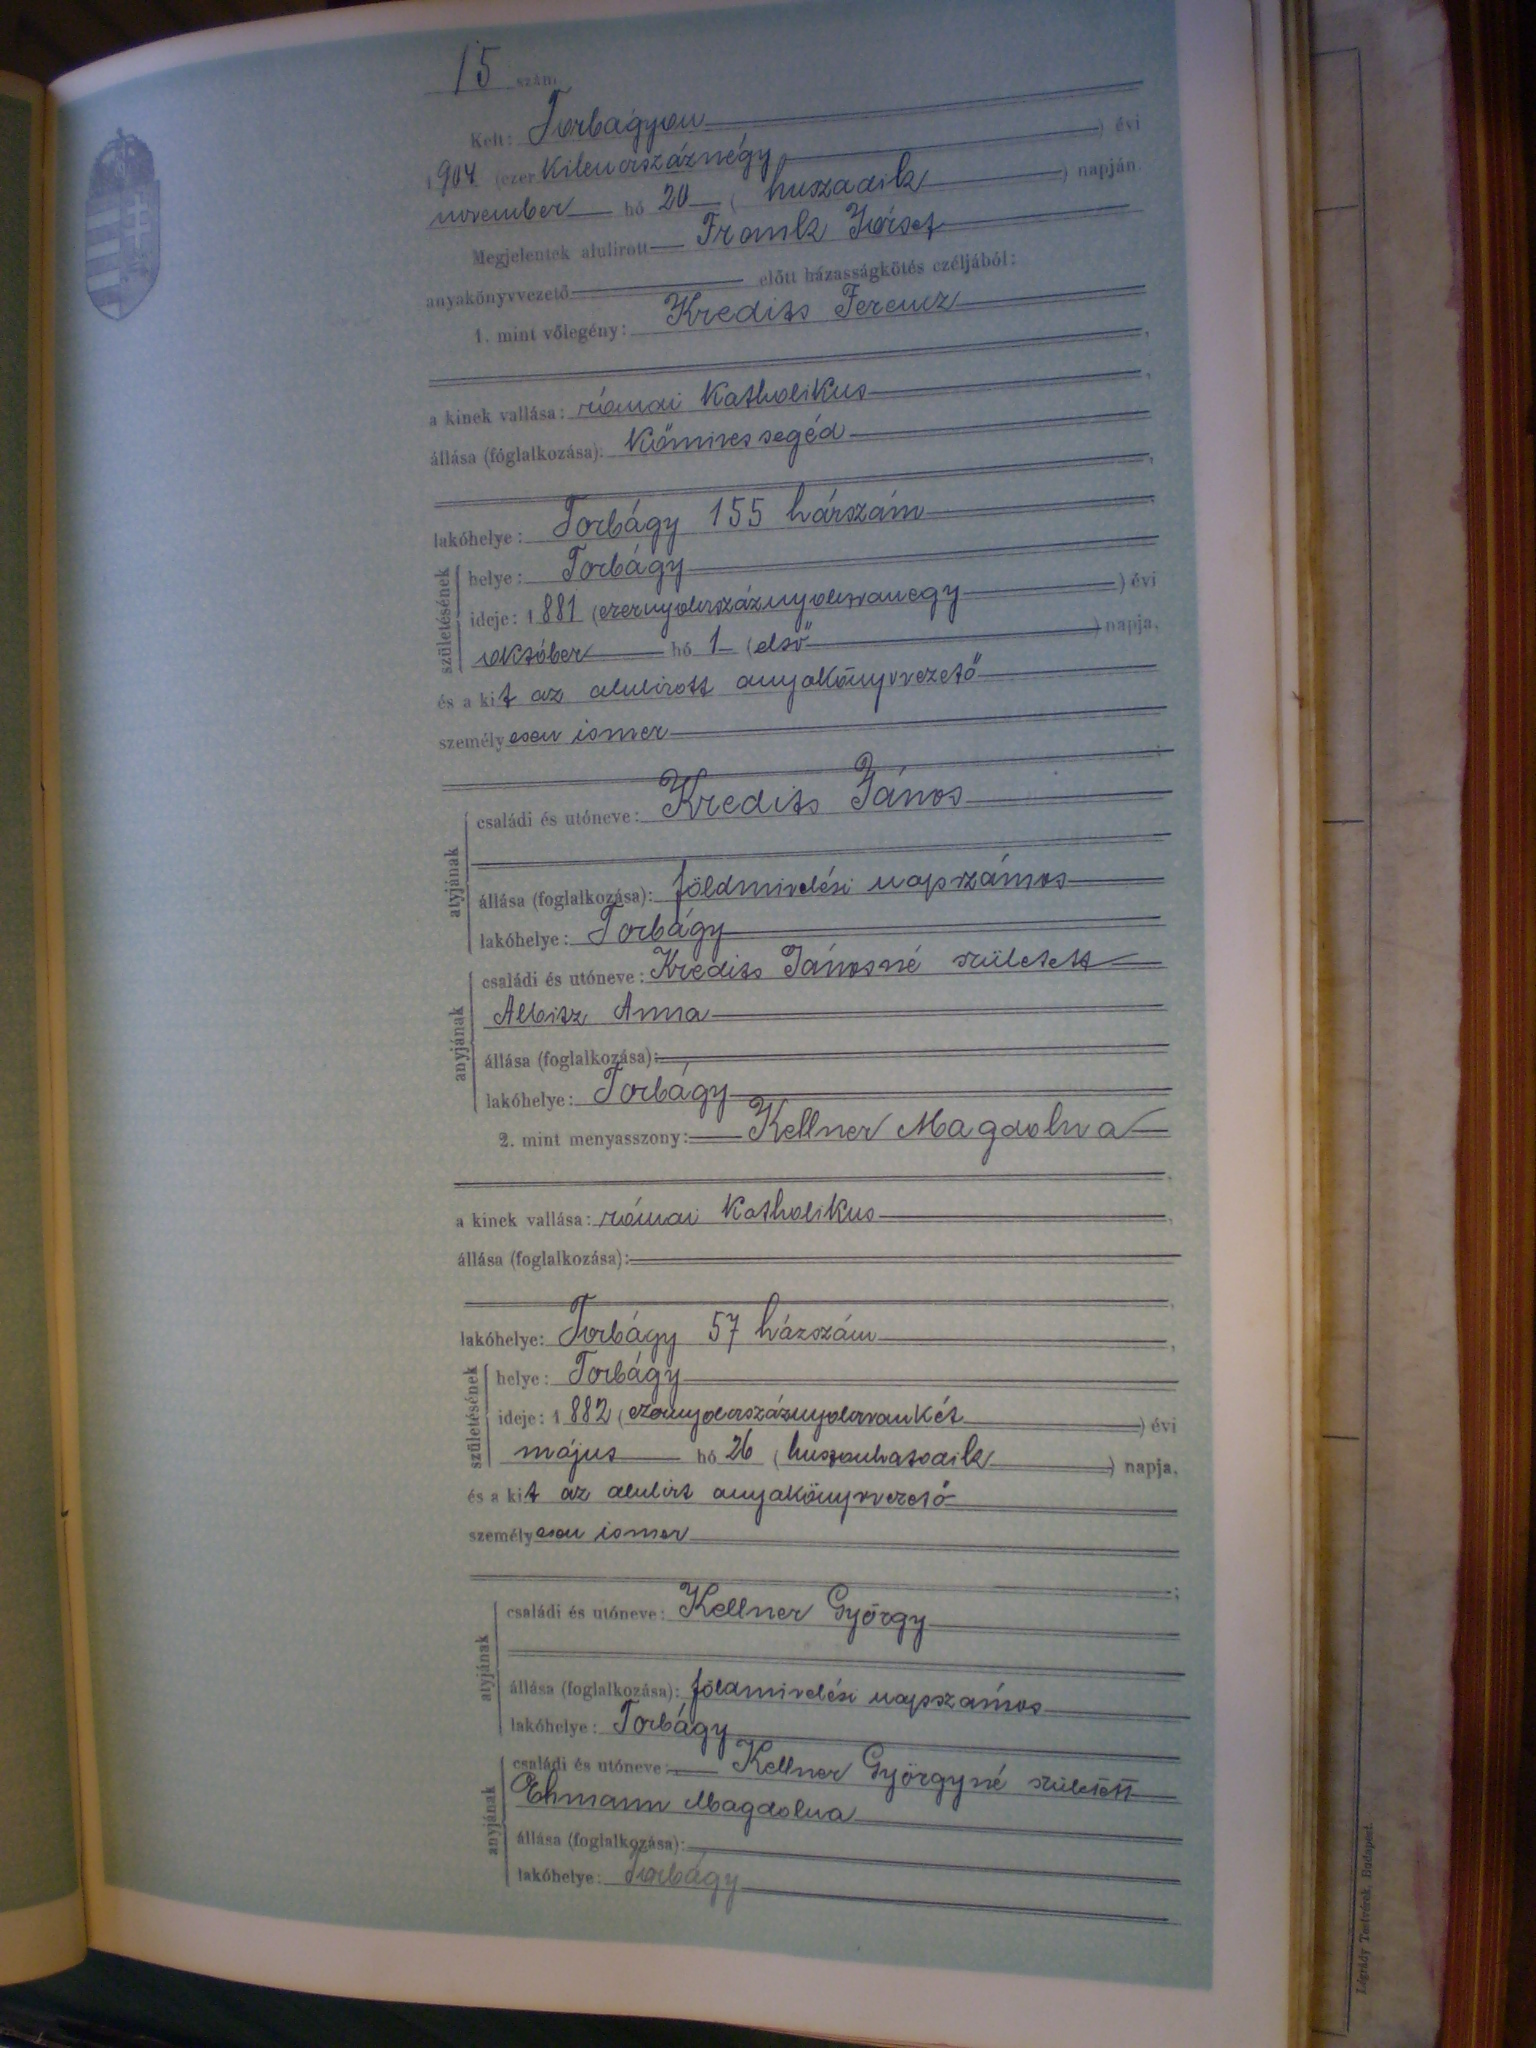 15 szám
Kelt: Torbágyon
1904 (ezer Kilenczszáznégy) évi
november hó 20 (huszadik) napján.
Megjelentek alulírott Frank József
anyakönyvvezető előtt házasságkötés czéljából:
1. mint vőlegény: Kredits Ferencz
a kinek vallása: római Katholikus,
állása (foglalkozása): Kőmivessegéd
lakóhelye: Torbágy 155 házszám
születésének helye: Torbágy
ideje: 1881 (ezernyolczszáznyolczvanegy) évi
október hó 1 (első) napja,
és a kit az alulirott anyakönyvvezető
személyesen ismer
atyjának családi és utóneve: Kredits János
állása (foglalkozása): földmivelési napszámos
lakóhelye: Torbágy
anyjának családi és utóneve: Kredits Jánosné született
Albitz Anna
állása (foglalkozása):
lakóhelye: Torbágy
2. mint menyasszony: Kellner Magdolna
a kinek vallása: római Katholikus,
állása (foglalkozása):
lakóhelye: Torbágy 57 házszám,
születésének helye: Torbágy
ideje: 1882 (ezernyolczszáznyolczvankét) évi
május hó 26 (huszonhatodik) napja,
és a kit az alulirt anyakönyvvezető
személyesen ismer
atyjának családi és utóneve: Kellner György
állása (foglalkozása): földmivelési napszámos
lakóhelye: Torbágy
anyjának családi és utóneve: Kellner Györgyné született
Ehmann Magdolna
állása (foglalkozása):
lakóhelye: Torbágy
Légrády Testvérek, Budapest.